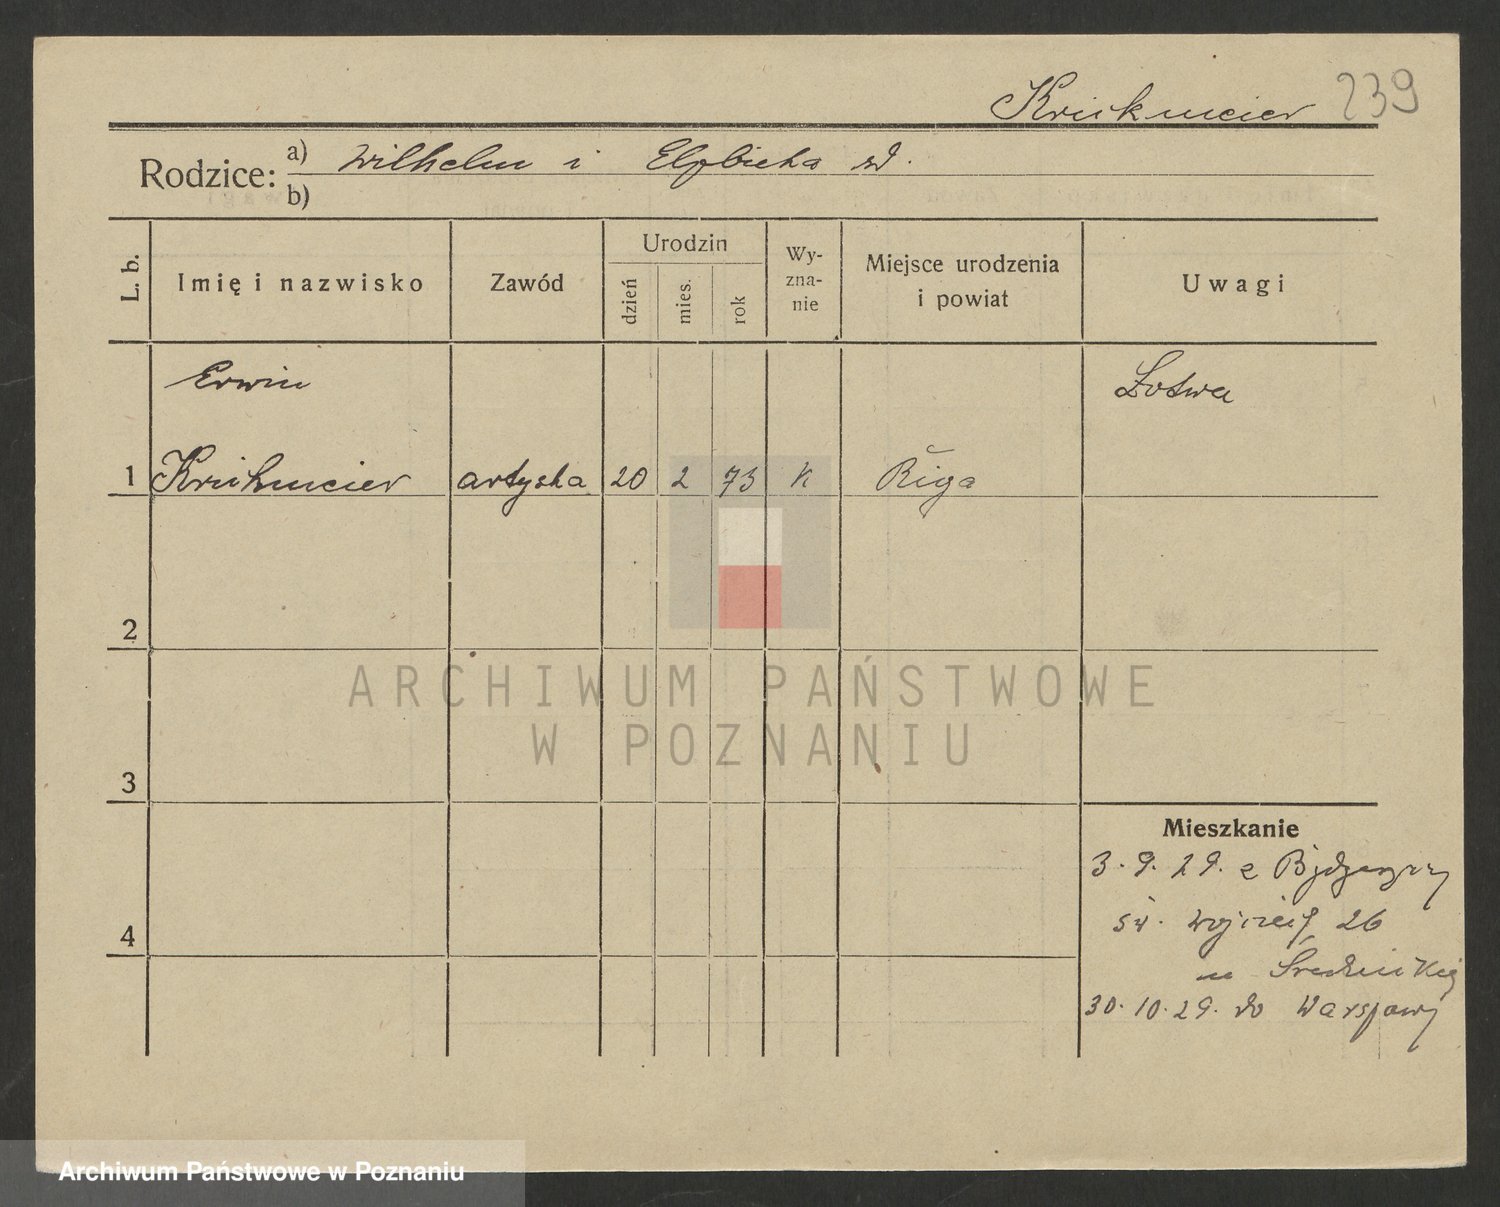 239
Rodzice: a) Wilhelm i Elżbieta
b)
L. b. Imię i nazwisko Zawód Urodzin dzień mies. rok Wy-zna-nie Miejsce urodzenia i powiat Uwagi
Erwin Łotwa
1 artysta 20 2 73 K Riga
2
ARCHIWUM PAŃSTWOWE
W POZNANIU
3
Mieszkanie
3.9.29. z Bydgoszczy
4
św. Wojciech 26
u
30.10.29. do Warszawy
Archiwum Państwowe w Poznaniu